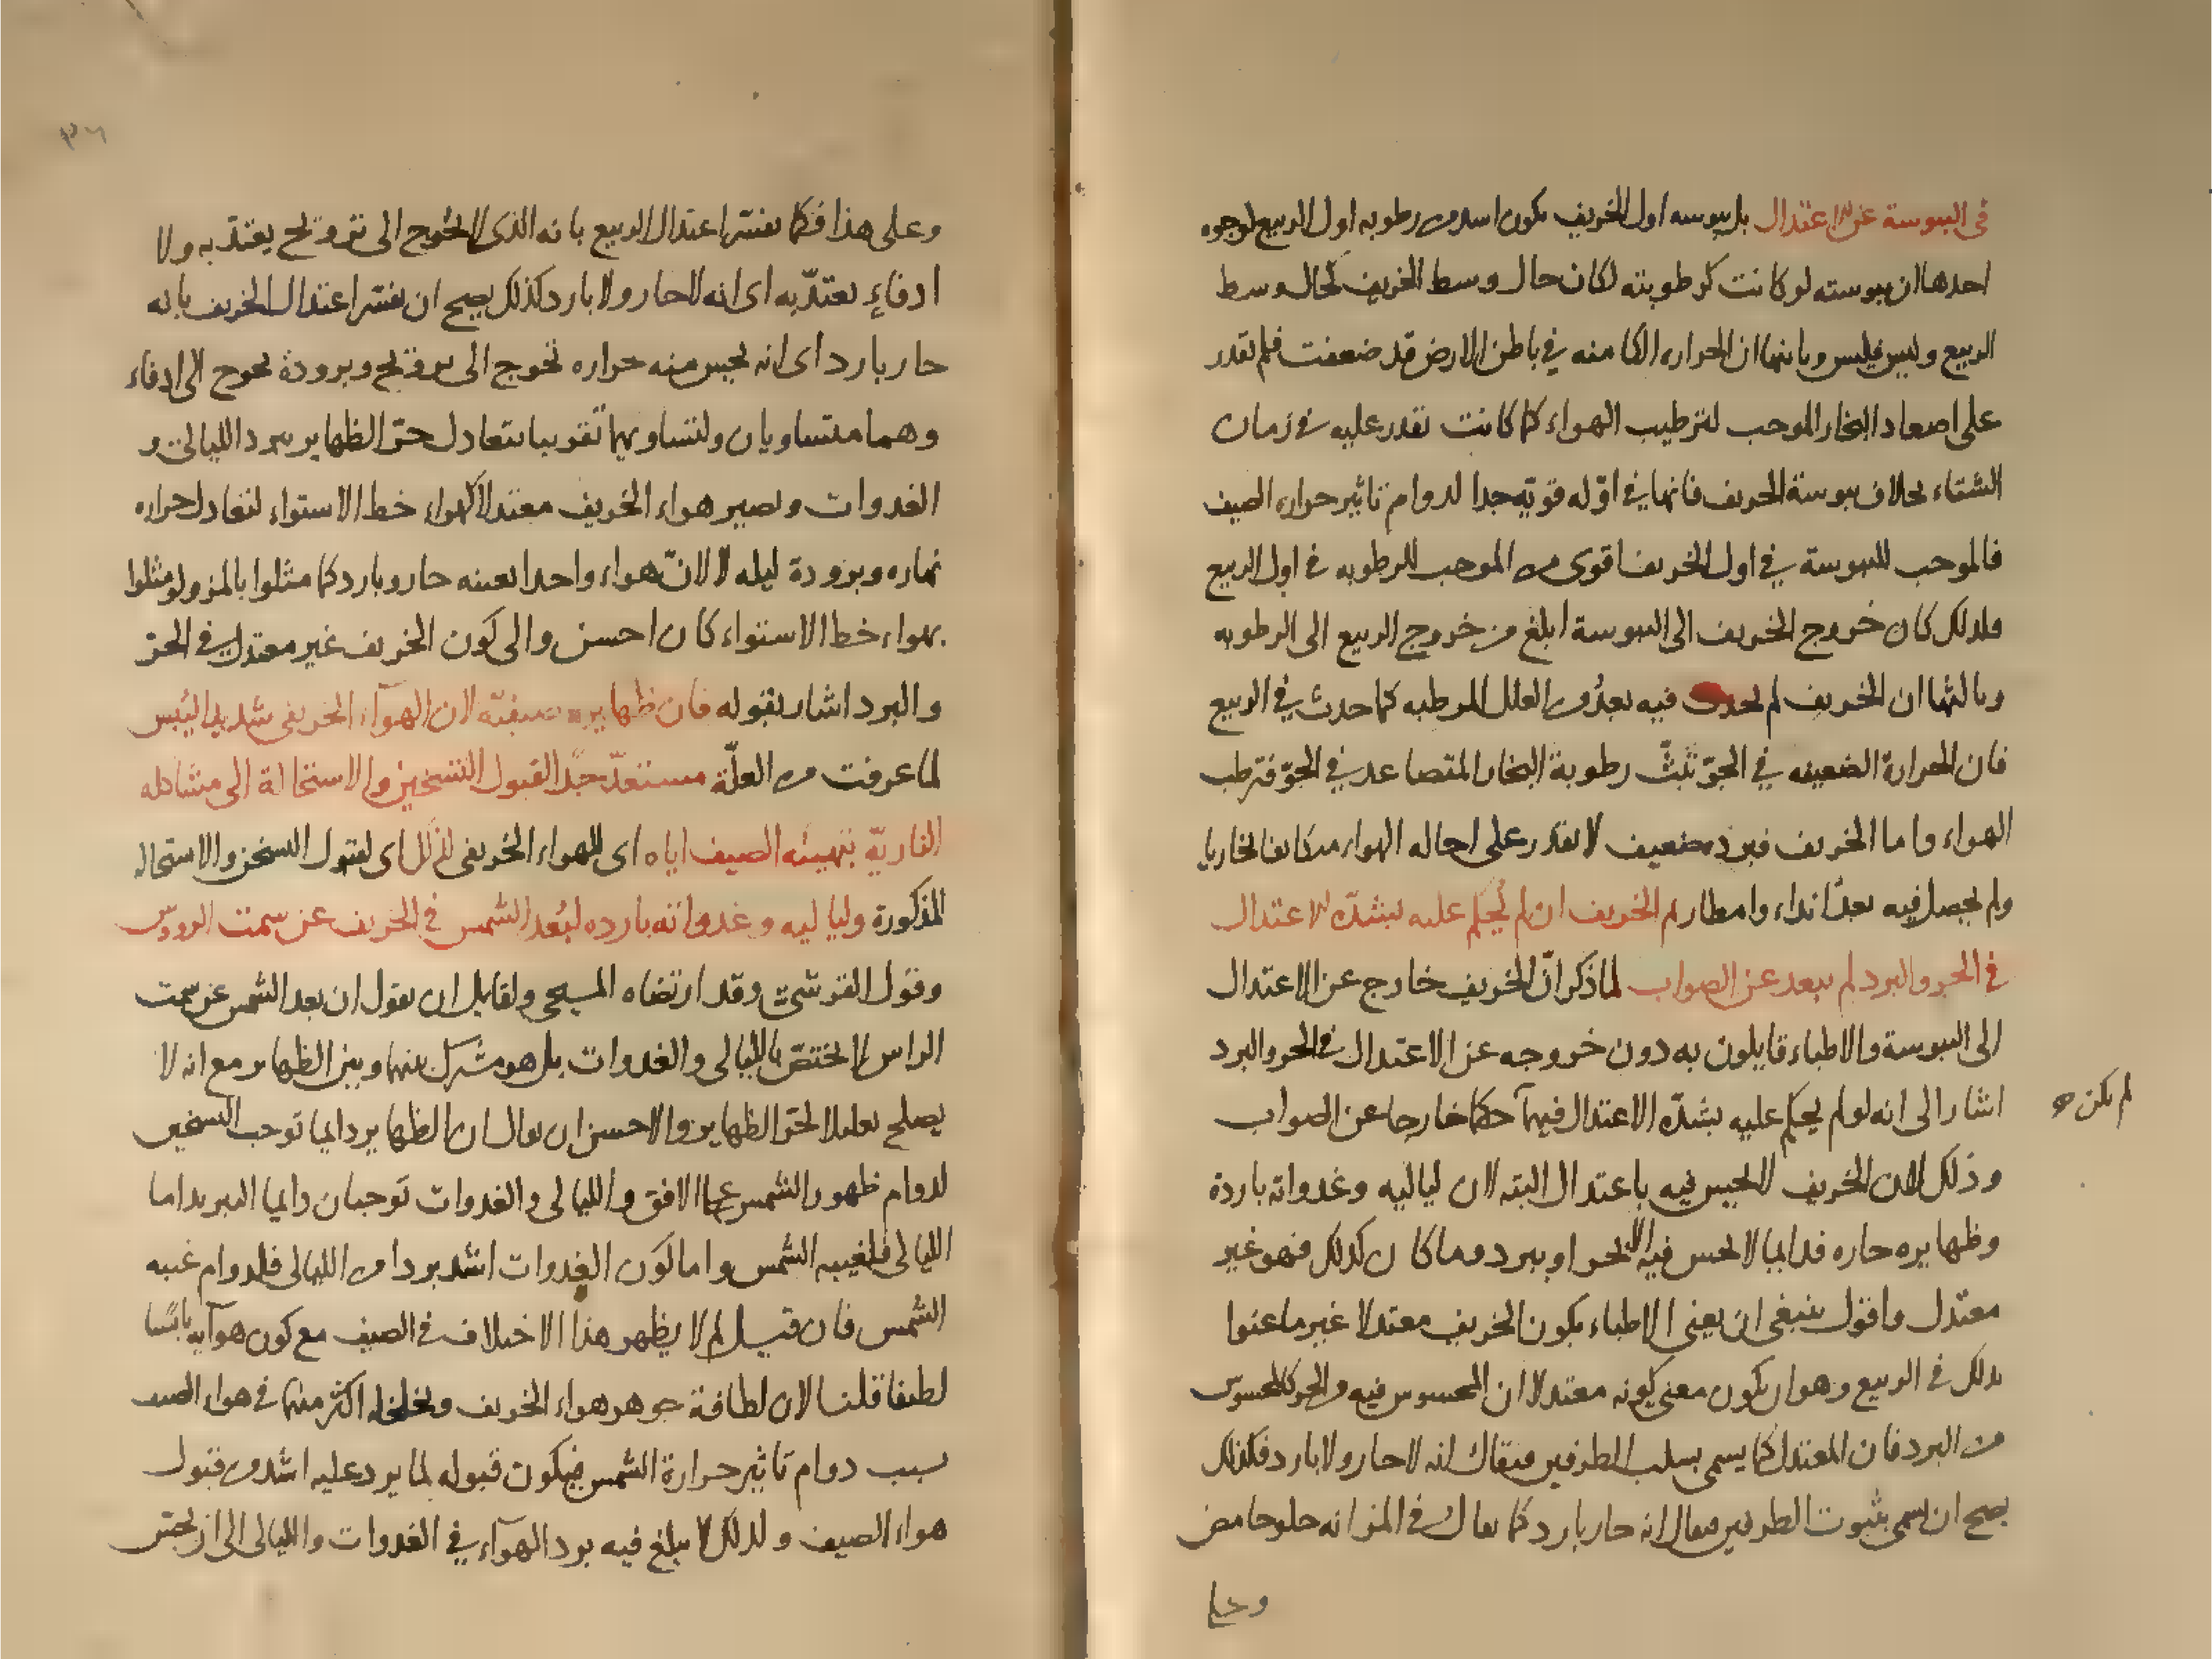 في اليبوسة عن الاعتدال بل يبوسه اول الخريف يكون اشد من رطوبه اول الربيع لوجوه
احدها ان يبوسته لو كانت كرطوبته لكان حال وسط الخريف كحال وسط
الربيع وليس فليس وثانيها ان الحراره الكامنه في باطن الارض قد ضعفت فلم تقدر
على اصعاد البخار الموجب لترطيب الهواء كما كانت تقدر عليه في زمان
الشتاء بخلاف يبوسة الخريف فانها في اوّله قويّه جدا لدوام تاثير حراره الصيف
فالموجب لليبوسة في اول الخريف اقوى من الموجب للرطوبه في اول الربيع
ولذلك كان خروج الخريف الى اليبوسة ابلغ من خروج الربيع الى الرطوبه
وثالثها ان الخريف لم يحدث فيه بعدُ من العلل المرطبه كما حدث في الربيع
فان الحرارة الضعيفه في الجوّ تبثّ رطوبة البخار المتصاعد في الجوّ فترطب
الهواء واما الخريف فبرده ضعيف لا يقدر على احاله الهواء متكاثفا بخاريا
ولم يحصل فيه بعدُ انداء وامطار ثم الخريف ان لم يُحكم عليه بشدّه الاعتدال
في الحر والبرد لم يبعد عن الصواب لما ذكر انّ الخريف خارج عن الاعتدال
الى اليبوسة والاطباء قايلون به دون خروجه عن الاعتدال في الحر والبرد
اشار الى انه لو لم يحكم عليه بشدّه الاعتدال فيهما حكما خارجا عن الصواب
لم يكن صح
وذلك لان الخريف لا يحس فيه باعتدال البته لان لياليه وغدواته باردة
وظهايره حاره فدايما لا يحس فيه الا بحر او ببرد وما كان كذلك فهو غير
معتدل واقول ينبغي ان يعنى الاطباء بكون الخريف معتدلا غير ما عنوا
بذلك في الربيع وهو ان يكون معنى كونه معتدلا ان المحسوس فيه من الحر كالمحسوس
من البرد فان المعتدل كما يسمى بسلب الطرفين فيقال انه لا حار ولا بارد فكذلك
يصح ان يسمى بثبوت الطرفين فيقال انه حار بارد كما يقال في المز انه حلو حامض
وعلى
٣٦
وعلى هذا فكما يفسّر اعتدال الربيع بانه الذي لا يُحوج الى ترويح يعتدّ به ولا
ادفاءٍ يعتدّ به اى انه لا حار ولا بارد كذلك يصح ان يفسر اعتدال الخريف بانه
حار بارد اى انه يحس منه حراره تحوج الى ترويح وبرودة تحوج الى ادفاء
وهما متساويان ولتساويهما تقريبا يتعادل حرّ الظهاير ببرد الليالى و
الغدوات ويصير هواء الخريف معتدلا كهواء خط الاستواء لتعادل حراره
نهاره وبرودة ليله لا لانّ هواء واحدا بعينه حار وبارد كما مثلوا بالمز ولو مثلوا
بهواء خط الاستواء كان احسن والى كون الخريف غير معتدل في الحرّ
والبرد اشار بقوله فان ظهايره صيفيّه لان الهوآء الخريفى شديد اليُبس
لما عرفت من العلّة مستعدّ جدًّا لقبول التسخين والاستحالة الى مشاكله
الناريّة بتهيئه الصيف اياه اى للهواء الخريفى لذلك اى لقبول التسخن والاستحاله
المذكورة ولياليه وغدواته بارده لبُعد الشمس في الخريف عن سمت الرووس
وقول القرشىّ وقد ارتضاه المسيحى ولقايل ان يقول ان بعد الشمس عن سمت
الراس لا يختصّ بالليالى والغدوات بل هو مشترك بينها وبين الظهاير مع انه لا
يصلح تعليلا لحرّ الظهاير والاحسن ان يقال ان الظهاير دايما توجب التسخين
لدوام ظهور الشمس على الافق والليالى والغدوات توجبان دايما التبريد اما
الليالى فلغيبه الشمس واما كون الغدوات اشد بردا من الليالى فلدوام غيبه
الشمس فان قيل لم لا يظهر هذا الاختلاف في الصيف مع كون هوآيه يابسًا
لطيفا قلنا لان لطافة جوهر هواء الخريف وتخلخله اكثر منها في هواء الصيف
بسبب دوام تاثير حرارة الشمس فيكون قبوله لما يرد عليه اشد من قبول
هواء الصيف ولذلك لا يبلغ فيه برد الهوآء في الغدوات والليالى الى ان يحسّ